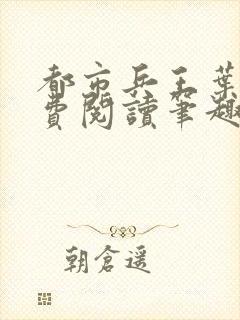 都市兵王葉
費閱讀筆趣
朝倉遥